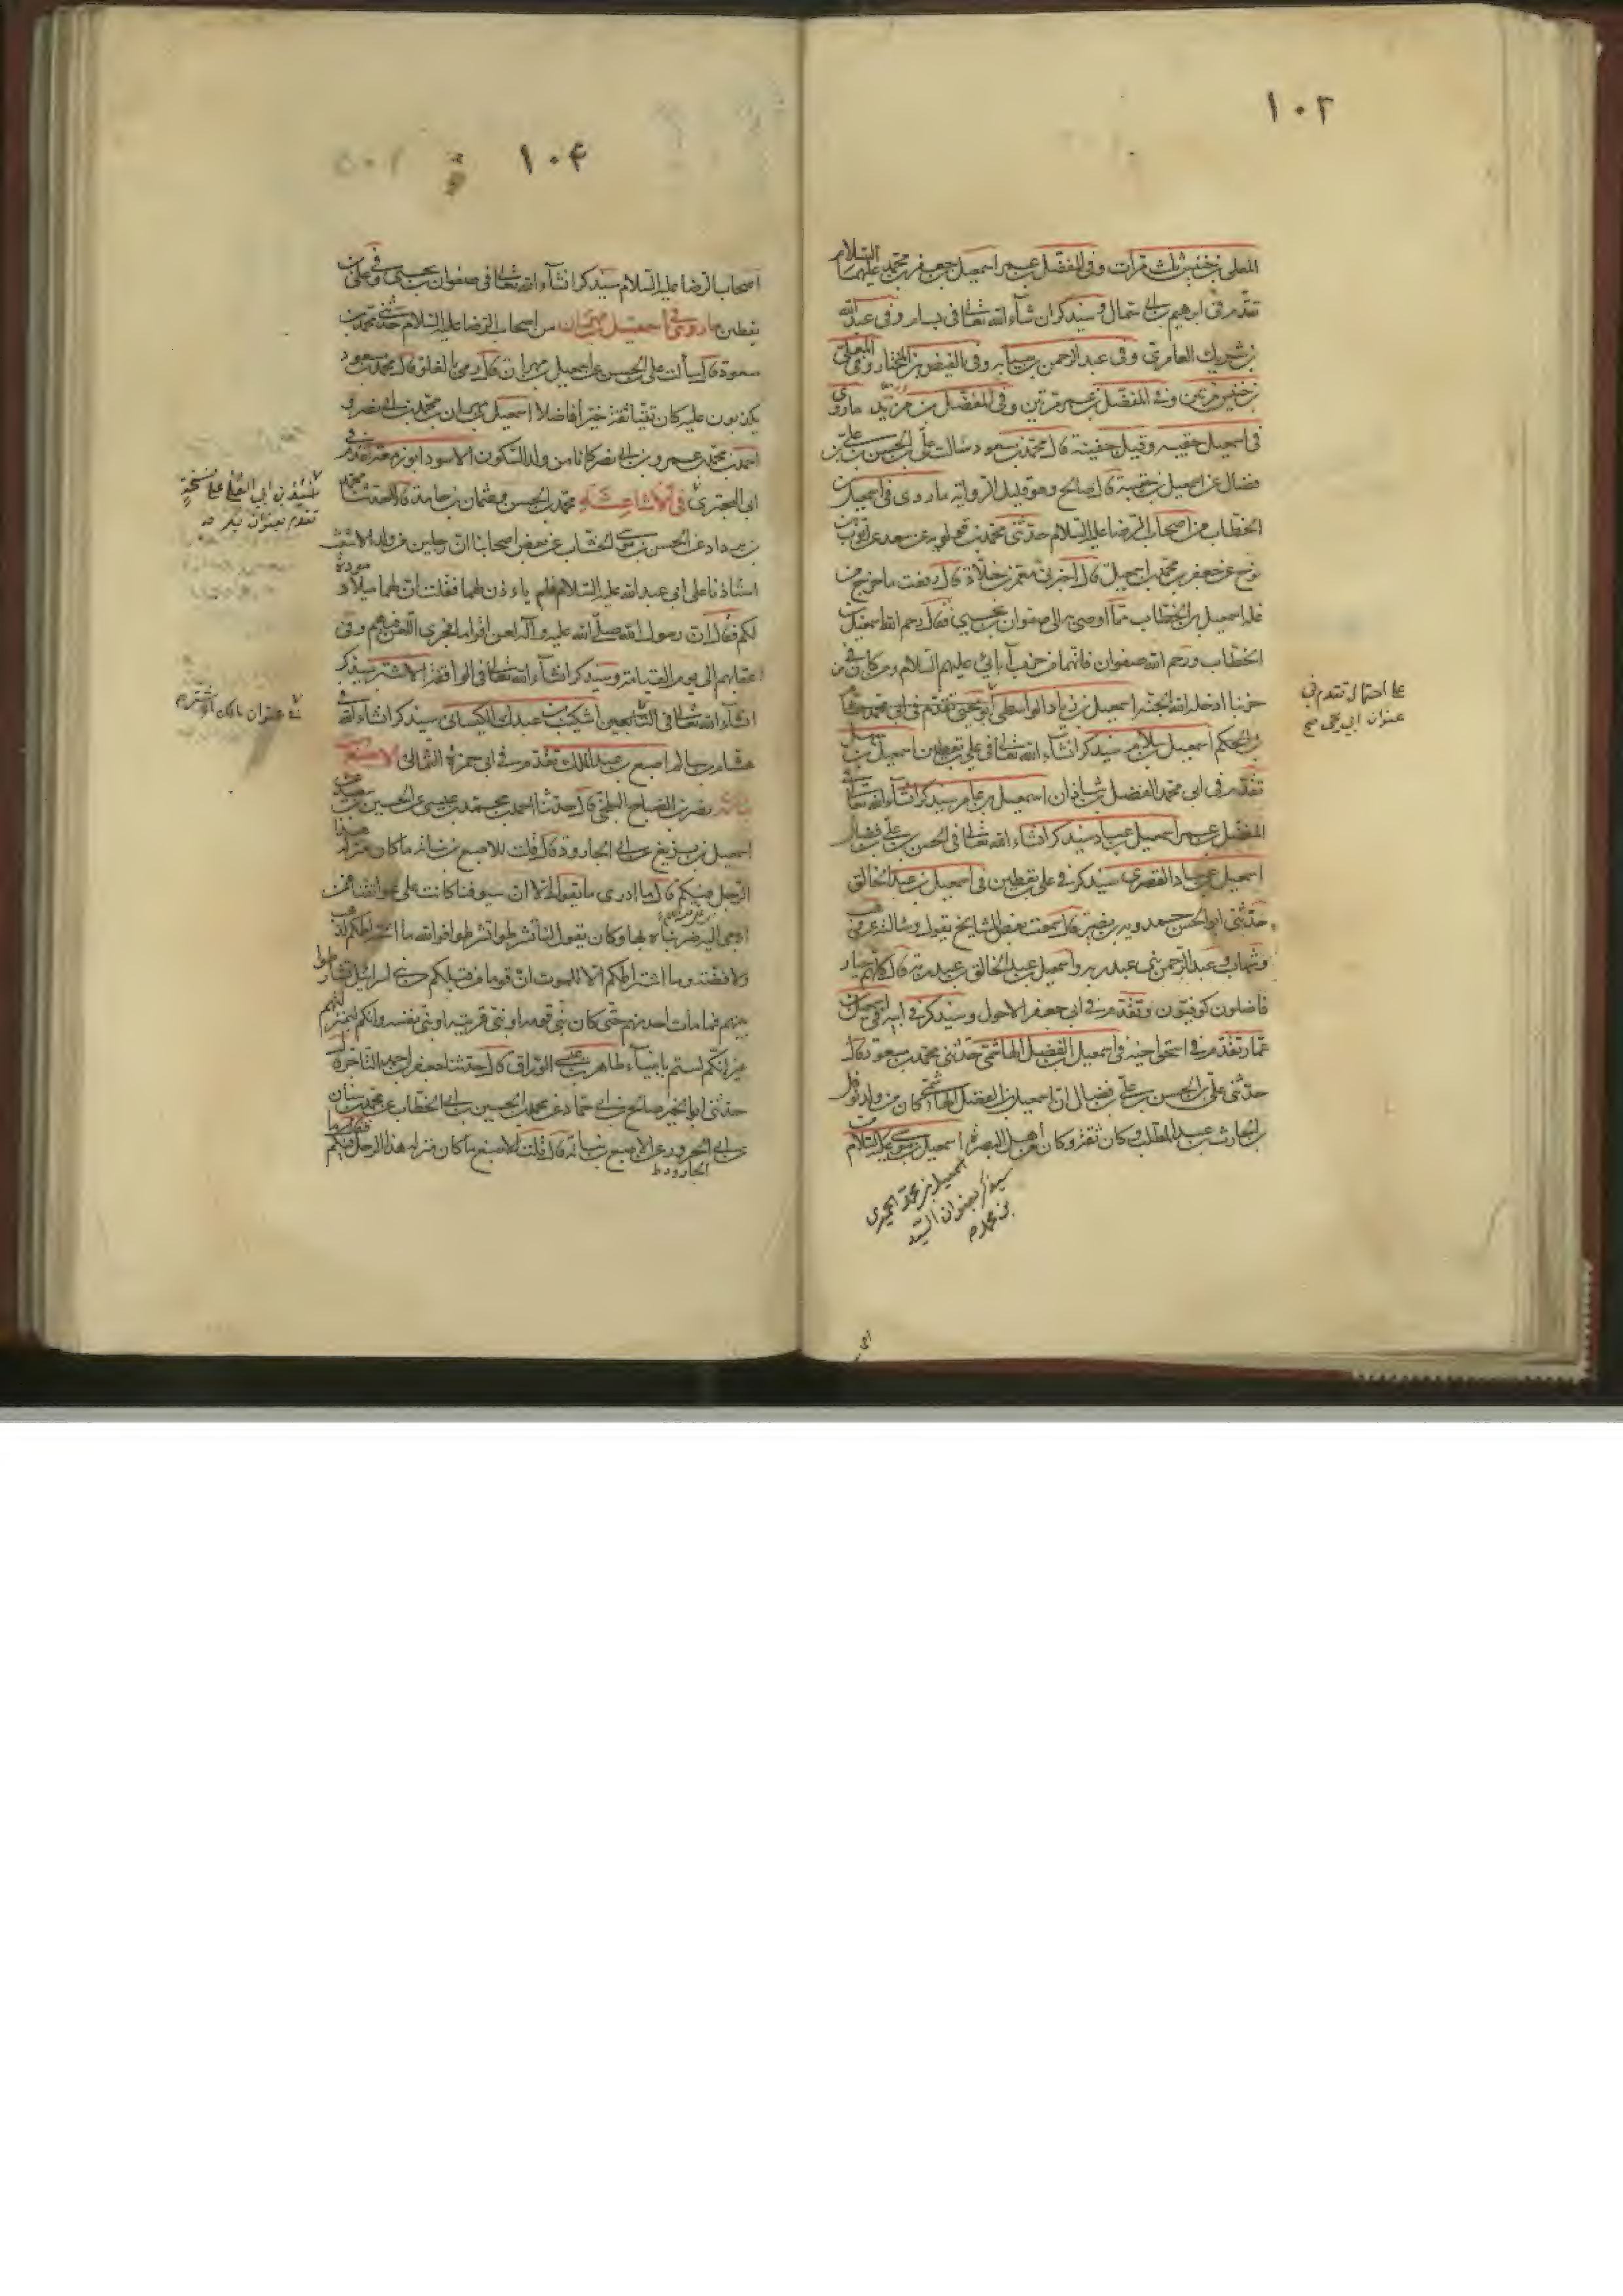 ١٠٣
المعلى بن خنيس ثلث مرات وفى المفضل بن عمر اسمعيل بن جعفر بن محمد عليهما السلام
تقدم فى ابرهيم بن ابى سمال وسيذكر ان شاء الله تعالى فى بسام وفى عبد الله
بن شريك العامرى وفى عبد الرحمن بن سيابه وفى الفيض بن المختار وفى المعلى
بن خنيس مرتين وفى المفضل بن عمر مرتين وفى المفضل بن مزيد ماروى
فى اسمعيل حقيبه وقيل جفينة قال محمد بن مسعود سالت على بن الحسن بن على بن
فضال عن اسمعيل بن حقيبة قال صالح وهو قليل الرواية ماروى فى اسمعيل بن
الخطاب من اصحاب الرضا عليه السلام حدثنى محمد بن قولويه عن سعد عن ايوب بن
نوح عن جعفر بن محمد بن اسمعيل قال اخبرنى معمر بن خلاد قال رفعت ما خرج من
غلة اسمعيل بن الخطاب بما اوصى به الى صفوان بن يحيى فقال رحم الله اسمعيل بن
الخطاب ورحم الله صفوان فانهما من حزب آبائى عليهم السلام ومن كان من
حزبنا ادخله الله الجنة اسمعيل بن زياد الواسطى ابو يحيى تقدم فى ابى محمد هشام
بن الحكم اسمعيل بن سلام سيذكر انشاء الله تعالى فى على بن يقطين اسمعيل بن سهل
تقدم فى ابى محمد الفضل بن شاذان اسمعيل بن عامر سيذكر انشاء الله تعالى فى
المفضل بن عمر اسمعيل بن عباد سيذكر انشاء الله تعالى فى الحسن بن على بن فضال
اسمعيل بن عباد القصرى سيذكر فى على بن يقطين فى اسمعيل بن عبد الخالق
حدثنى ابو الحسن حمدويه بن نصير قال سمعت بعض المشايخ يقول وسالته عن وهب
وشهاب وعبد الرحمن بنى عبد ربه واسمعيل بن عبد الخالق بن عبد ربه قال كلهم خيار
فاضلون كوفيون وتقدم فى ابى جعفر الاحول وسيذكر فى ابيه اسمعيل بن
عمار تقدم فى اسحق اخيه فى اسمعيل بن الفضل الهاشمى حدثنى محمد بن مسعود قال
حدثنى على بن الحسن بن على بن فضال ان اسمعيل بن الفضل الهاشمى كان من ولد نوفل
بن الحارث بن عبد المطلب وكان ثقة وكان من اهل البصرة اسمعيل بن موسى عليه السلام
اسمعيل بن محمد الحميرى
سيذكر بعنوان السيد
بن محمد
على احتمال تقدم فى
عنوان ابى يحيى
١٠٤
اصحاب الرضا عليه السلام سيذكر انشاء الله تعالى فى صفوان بن يحيى وفى على بن
يقطين ماروى فى اسمعيل بن مهران من اصحاب الرضا عليه السلام حدثنى محمد بن
مسعود قال سألت على بن الحسن عن اسمعيل بن مهران قال رمى بالغلو قال محمد بن مسعود
يكذبون عليه كان تقيا ثقة خيرا فاضلا اسمعيل بن مهران بن محمد بن ابى نصر و
احمد بن محمد بن عمرو بن ابى نصر كانا من ولد السكون الاسود ابو زمعة تقدم فى
ابى البخترى فى الاشاعثه محمد بن الحسن وعثمان بن حامد قالا حدثنا محمد
بن يزداد عن الحسن بن موسى الخشاب عن بعض اصحابنا ان رجلين من ولد الاشعث
استاذنا على ابى عبد الله عليه السلام فلم ياءذن لهما فقلت ان لهما ميلا ومودة
لكم فقال ان رسول الله صلى الله عليه وآله لعن اقواما فجرى اللعن فيهم وفى
اعقابهم الى يوم القيامة وسيذكر انشاء الله تعالى فى ابوا فقه الاشتر سيذكر
انشاء الله تعالى فى التابعين اشكيب بن عبدك الكيسانى سيذكر انشاء الله فى
هشام بن سالم اصبغ بن عبد الملك تقدم فى ابى حمزة الثمالى الاصبغ
بن نباته نصر بن الصباح البلخى قال حدثنا احمد بن محمد بن عيسى عن الحسين بن سعيد عن
اسمعيل بن بزيع عن ابى الجارود قال قلت للاصبغ بن نباته ما كان منزلة هذا
الرجل فيكم قال ما ادرى ما تقول الا ان سيوفنا كانت على عواتقنا فمن
اومى اليه ضربناه بها وكان يقول لنا تشرطوا تشرطوا فوالله ما اشتراطكم لذهب
ولا فضة وما اشتراطكم الا للموت ان قوما من قبلكم من بنى اسرائيل تشارطوا
بينهم فما مات احد منهم حتى كان نبى قومه او نبى قريته او نبى نفسه وانكم لبمنزلتهم
غير انكم لستم بانبياء طاهر بن عيسى الوراق قال حدثنا جعفر بن احمد التاجر قال
حدثنى ابو الخير صالح بن ابى حماد عن محمد بن الحسين بن ابى الخطاب عن محمد بن سنان
عن ابى الجرود عن الاصبغ بن نباته قال قلت للاصبغ ما كان منزلة هذا الرجل فيكم فقال ما
الجارود ط
تقدم بعنوان